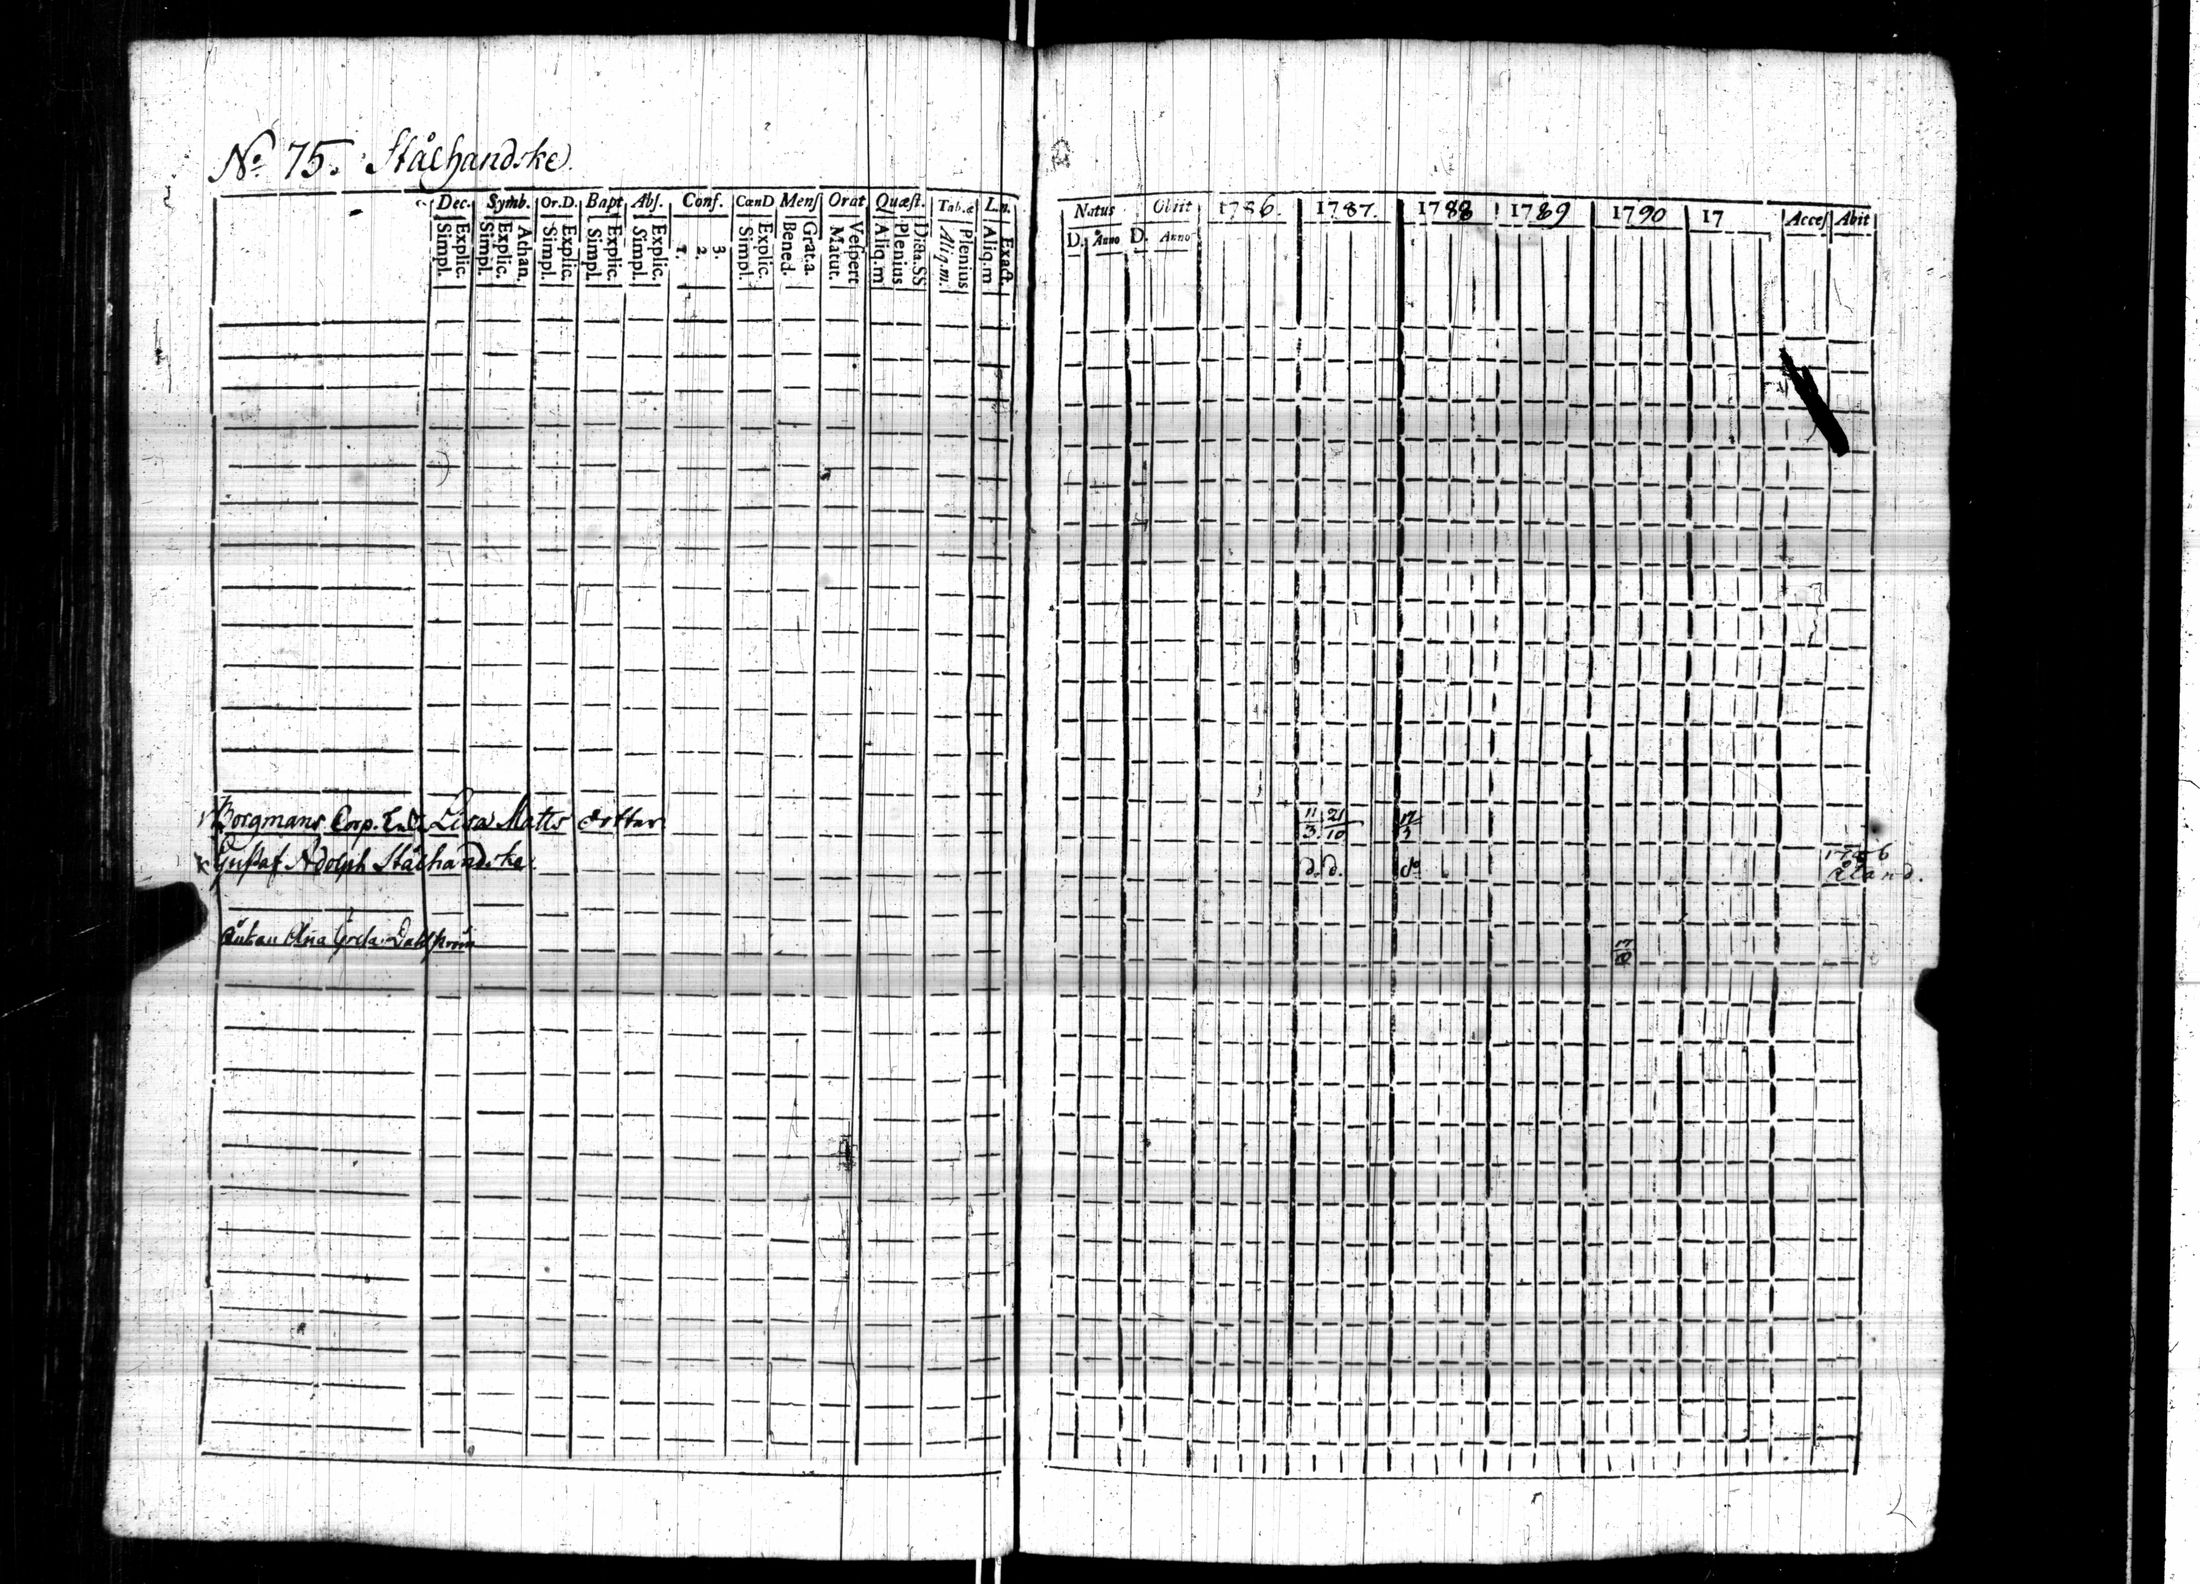 No 75. Stålhandske
Dec. Symb. Or.D. Bapt Abs. Conf. CœnD Mens Orat Quæst. Tab.æ L.n.
Simpl. Explic. Simpl. Explic. Athan. Simpl. Explic. Simpl. Explic. Simpl. Explic. 1. 2. 3. Simpl. Explic. Bened. Grat.a. Matut. Vespert Aliq.m Plenius Dicta.SS Aliq.m. Plenius Aliq.m Exact.
Natus Obiit 1786 1787. 1788 1789 1790 17 Acces Abit
D. Anno D. Anno
Borgmans Corp. Lisa Matts dotter 11/3 21/10 17
Gustaf Adolph Stålhandske d. d. do 1786 Åland.
Änkan Greta 17